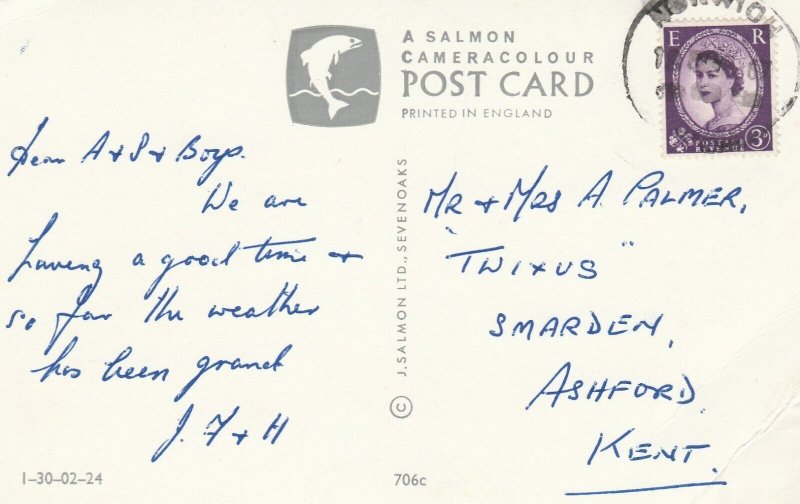 A SALMON
CAMERACOLOUR
POST CARD
PRINTED IN ENGLAND
NORWICH
E R
POSTAGE
REVENUE
3D
Dear A + S + Boys.
We are
having a good time +
so far the weather
has been grand
J. F + H
1-30-02-24
© J. SALMON LTD., SEVENOAKS
706c
MR + MRS A. PALMER,
"TWIXUS"
SMARDEN,
ASHFORD.
KENT.